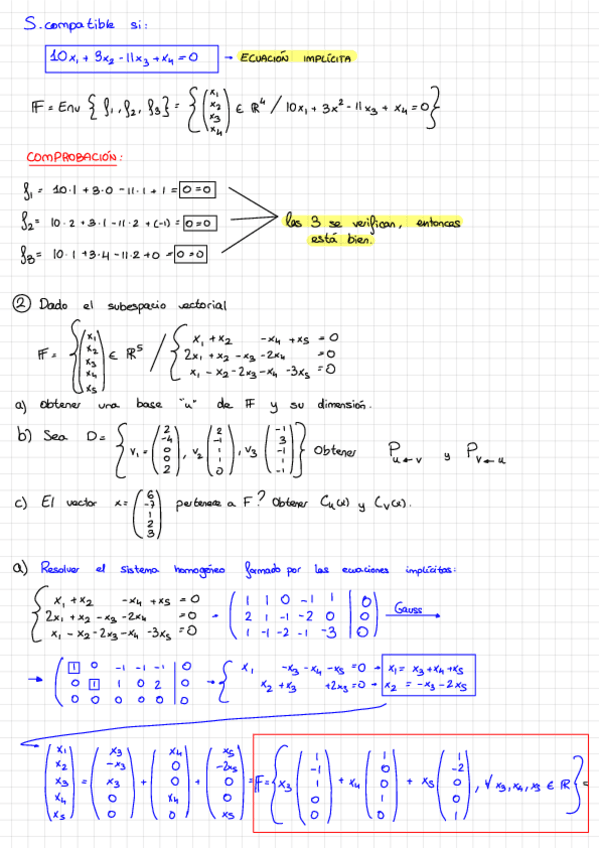 S. compatible si:
10x₁ + 3x₂ - 11x₃ + x₄ = 0 → ECUACIÓN IMPLÍCITA
F = Env { f₁, f₂, f₃ } = { (x₁ x₂ x₃ x₄) ∈ ℝ⁴ / 10x₁ + 3x² - 11x₃ + x₄ = 0 }
COMPROBACIÓN:
f₁ = 10·1 + 3·0 - 11·1 + 1 = 0=0
f₂ = 10·2 + 3·1 - 11·2 + (-1) = 0=0
f₃ = 10·1 + 3·4 - 11·2 + 0 = 0=0
Las 3 se verifican, entonces
está bien.
② Dado el subespacio vectorial
F = { (x₁ x₂ x₃ x₄ x₅) ∈ ℝ⁵ / { x₁ + x₂ - x₄ + x₅ = 0
2x₁ + x₂ - x₃ - 2x₄ = 0
x₁ - x₂ - 2x₃ - x₄ - 3x₅ = 0
a) Obtener una base "u" de F y su dimensión.
b) Sea D = { v₁ = (2 -4 0 0 2), v₂ (2 -1 1 1 0), v₃ (-1 3 -1 1 -1) } Obtener P u←v y P v←u
c) El vector x = (6 -7 1 2 3) pertenece a F? Obtener Cu(x) y Cv(x).
a) Resolver el sistema homogéneo formado por las ecuaciones implícitas:
{ x₁ + x₂ - x₄ + x₅ = 0
2x₁ + x₂ - x₃ - 2x₄ = 0
x₁ - x₂ - 2x₃ - x₄ - 3x₅ = 0
→ ( 1 1 0 -1 1 | 0
2 1 -1 -2 0 | 0
1 -1 -2 -1 -3 | 0 ) Gauss →
→ ( 1 0 -1 -1 -1 | 0
0 1 1 0 2 | 0
0 0 0 0 0 | 0 )
→ { x₁ - x₃ - x₄ - x₅ = 0 → x₁ = x₃ + x₄ + x₅
x₂ + x₃ + 2x₅ = 0 → x₂ = -x₃ - 2x₅
(x₁ x₂ x₃ x₄ x₅) = (x₃ -x₃ x₃ 0 0) + (x₄ 0 0 x₄ 0) + (x₅ -2x₅ 0 0 x₅) = F = { x₃ (1 -1 1 0 0) + x₄ (1 0 0 1 0) + x₅ (1 -2 0 0 1), ∀ x₃, x₄, x₅ ∈ ℝ } =